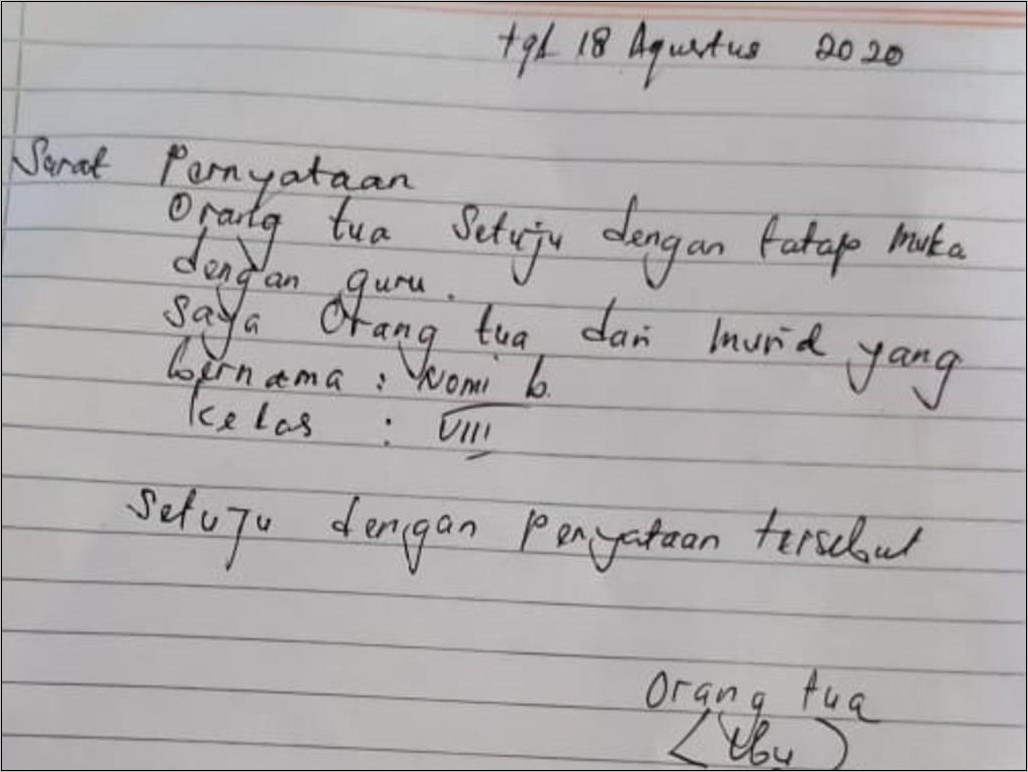 tgl 18 Agustus 2020
Surat Pernyataan
Orang tua Setuju dengan tatap muka
dengan guru.
Saya Orang tua dari murid yang
bernama : Nomi b.
Kelas : VIII
Setuju dengan Penyataan tersebut
Orang tua
(Ibu)